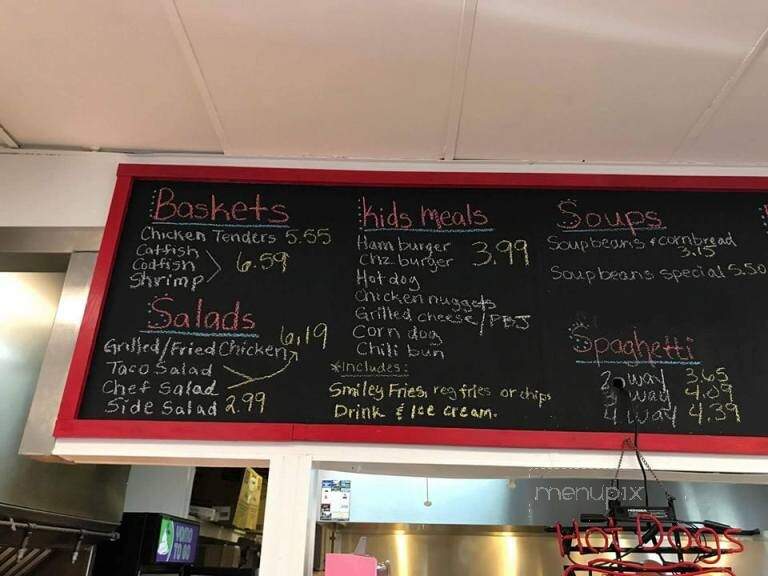 Baskets
Chicken Tenders 5.55
Catfish
Codfish 6.59
Shrimp
Salads
Grilled/Fried Chicken 6.19
Taco Salad
Chef Salad
Side Salad 2.99
Kids Meals
Hamburger 3.99
Chz burger
Hot dog
Chicken nuggets
Grilled cheese/PBJ
Corn dog
Chili bun
*Includes:
Smiley Fries, reg fries or chips
Drink & Ice Cream.
Soups
Soupbeans & cornbread
3.15
Soupbeans special 5.50
Spaghetti
2 way 3.65
3 way 4.09
4 way 4.39
menupix
Hot Dogs
TO GO